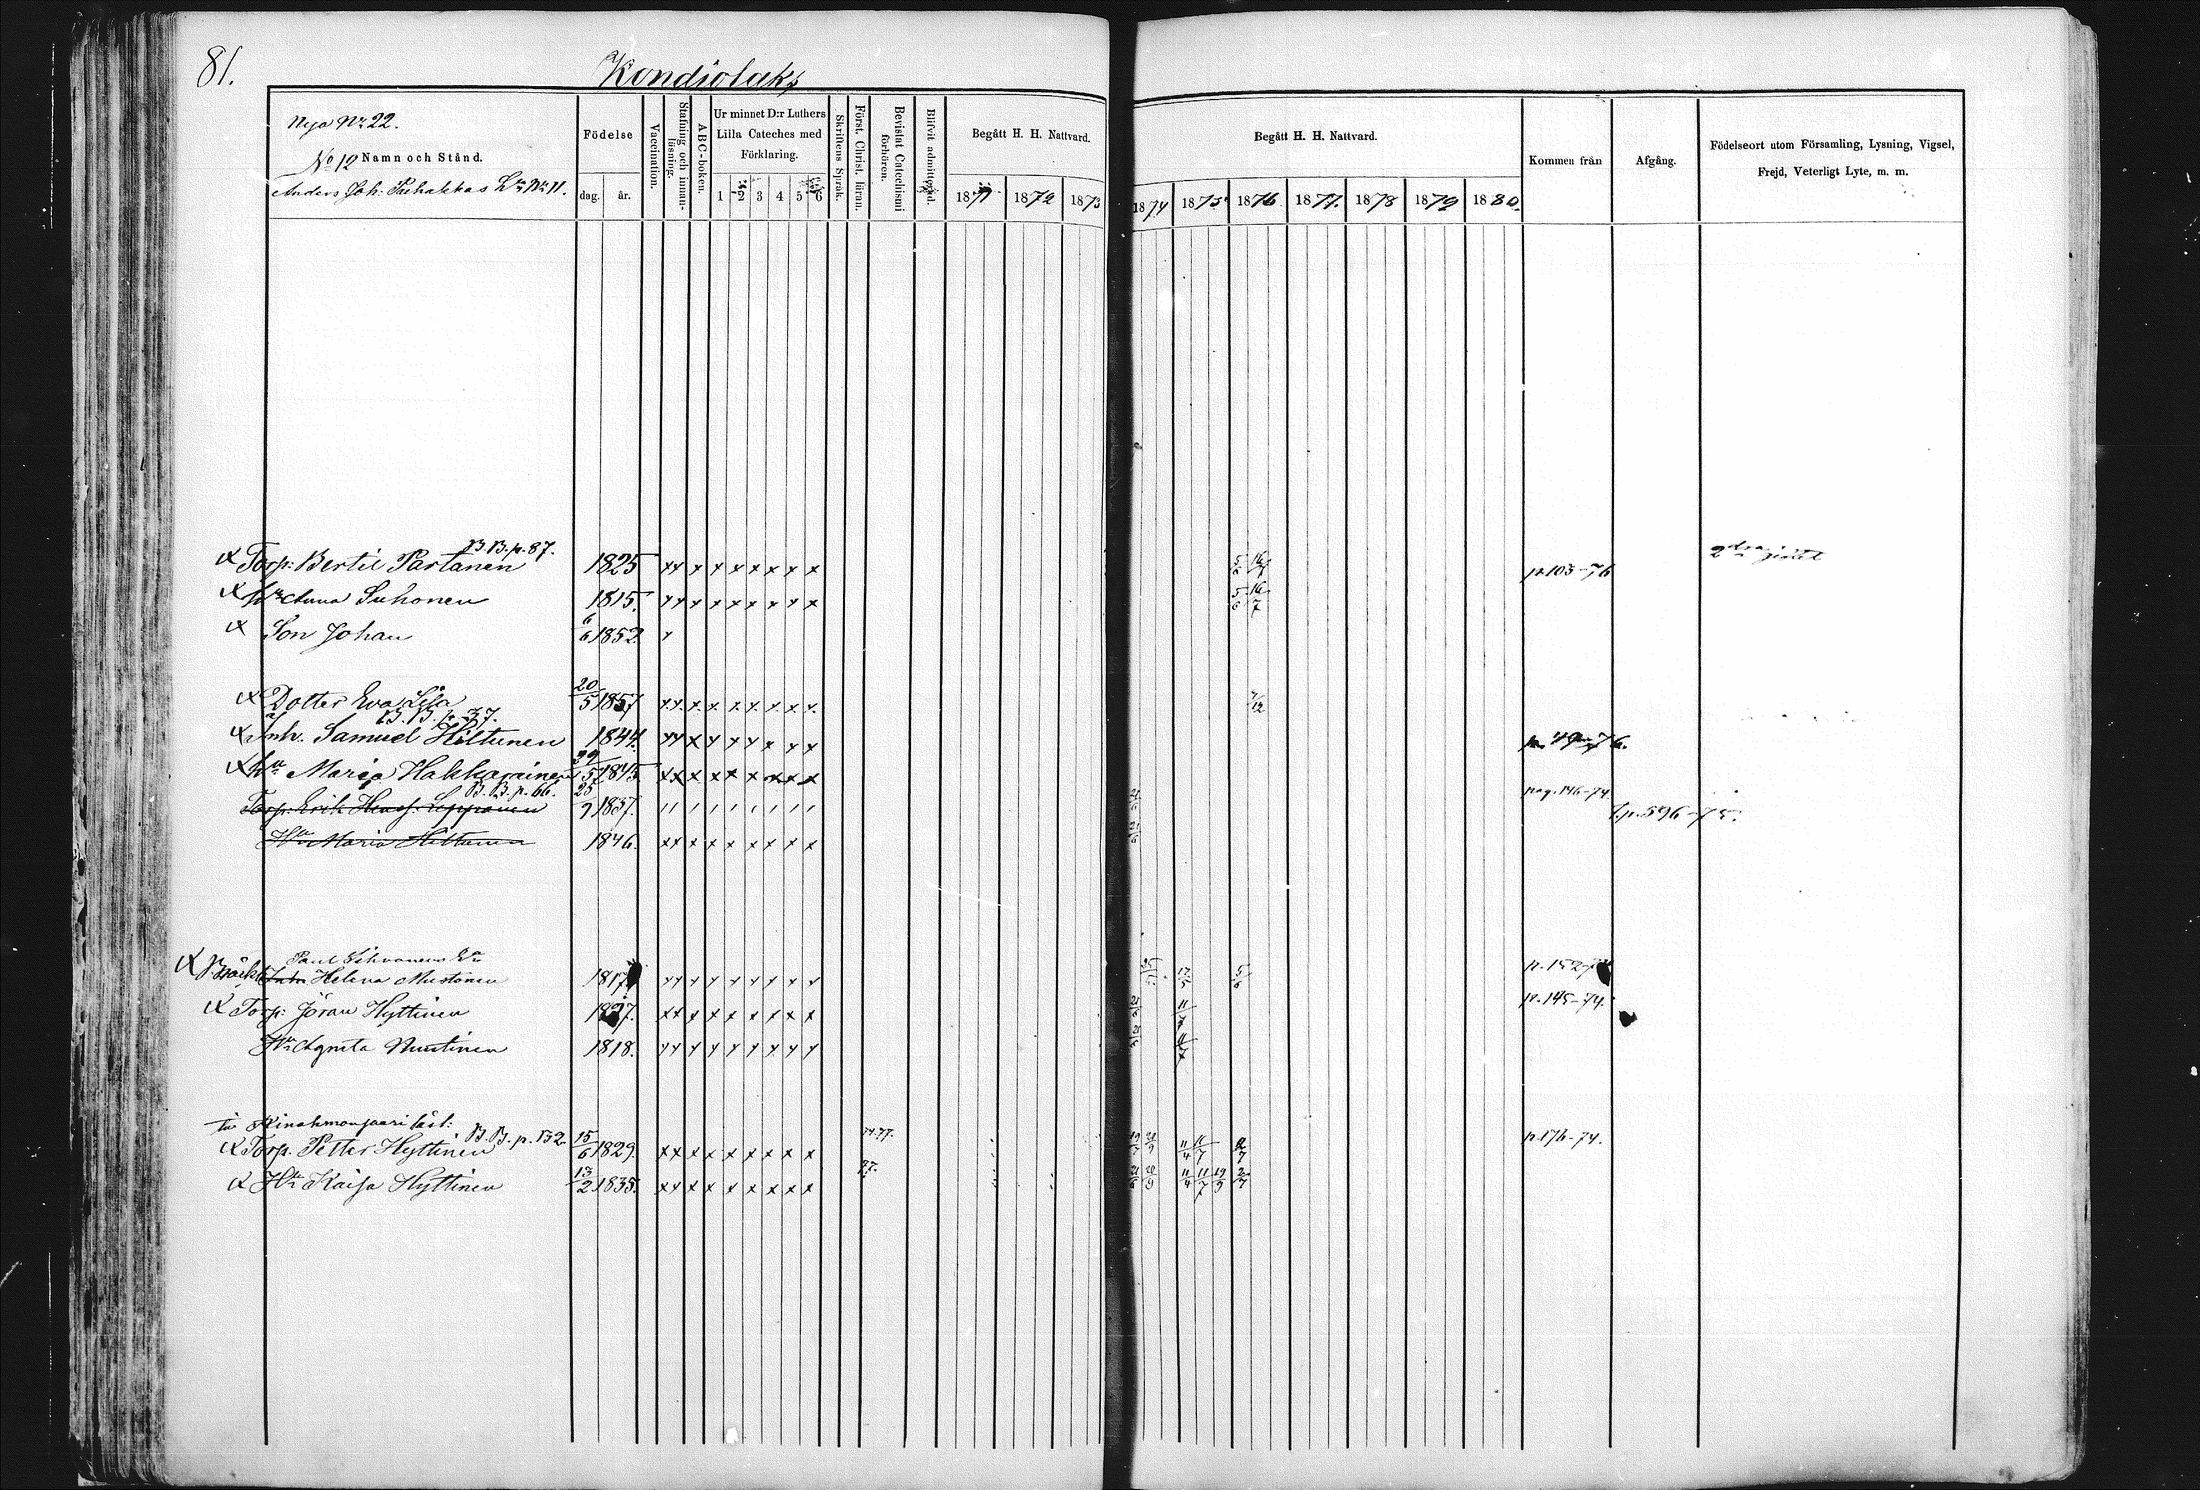 81.
Kondiolaks
Nya No 22.
No 12 Namn och Stånd.
Anders Joh. Puhakkas Ln No 11.
Födelse
dag. år.
Vaccination.
Stafning och innanläsning.
ABC-boken.
Ur minnet D:r Luthers Lilla Cateches med Förklaring.
1 2 3 4 5 6
Skriftens Språk.
Först. Christ. läran.
Bevistat Catechismi förhören.
Blifvit admitterad.
Begått H. H. Nattvard.
1871 1872 1873
Begått H. H. Nattvard.
1874 1875 1876 1877. 1878 1879 1880.
Kommen från
Afgång.
Födelseort utom Församling, Lysning, Vigsel, Frejd, Veterligt Lyte, m. m.
B. B. p. 87.
Torp: Bertil Partanen 1825 x x x x x x x x x 5/6 16/7 p. 103-76
Hu Anna Suhonen 1815. x x x x x x x x x 5/6 16/7
Son Johan 6/6 1852. x
Dotter Eva Lisa 20/5 1857 x x x x x x x x x 7/12
B. B. p. 37.
Inh. Samuel Hiltunen 1844. x x x x x x x x x p. 49-76.
Hu Maria Hakkarainen 29/5 1845 x x x x x x x x x
B. B. p. 66.
Torp: Erik Henr. Leppänen 25/9 1837. pag. 146-74. t. p. 596-75.
Hu Maria Hiltunen 1846. x x x x x x x x x
Paul Sihvonens En
Inh. Helena Mustonen 1817 x x x x x x x x x 17/5 5/6 p. 152-
Torp: Jöran Hyttinen x x x x x x x x x p. 145-74.
Hu Agneta Mustonen 1818. x x x x x x x x x
B. B. p. 132
Torp. Petter Hyttinen 15/6 1829. x x x x x x x x x 74.77. 19/7 11/4 11/7 2/7 p. 176-74.
Hu Kaisa Hyttinen 13/2 1835. x x x x x x x x x 77. 11/4 11/7 19/9 2/7